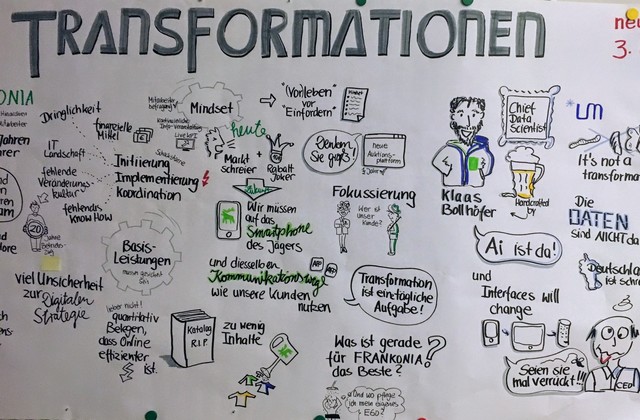 TRANSFORMATIONEN
ONIA
Dringlichkeit
finanzielle
Mittel
IT
Landschaft
fehlende
Veränderungs-
kultur
fehlendes
Know How
Initiierung
Implementierung
Koordination
20
Basis-
Leistungen
viel Unsicherheit
zur Digitalen
Strategie
quantitativ
Belegen,
dass Online
effizienter
ist.
Mindset
"Vorleben"
vor
"Einfordern"
heute
Markt
schreier
+
Rabatt
Joker
Denken
Sie groß!
neue
Auktions-
plattform
Wir müssen
auf das
Smartphone
des Jägers
und dieselben
Kommunikationswege
wie unsere Kunden
nutzen
APP
Katalog
R.I.P.
zu wenig
Inhalte
Fokussierung
Wer ist
unser
Kunde?
Transformation
ist eintägliche
Aufgabe!
Was ist gerade
für FRANKONIA
das Beste?
Und wo pflege
ich mein
EGO?
Klaas
Bollhöfer
Chief
Data
Scientist
Handcrafted
by
Ai ist da!
und
Interfaces will
change
Seien sie
mal verrückt!!!
CEO
neu
3.
*UM
It's not a
transforma
Die
DATEN
sind NICHT da
Deutschla
ist schre